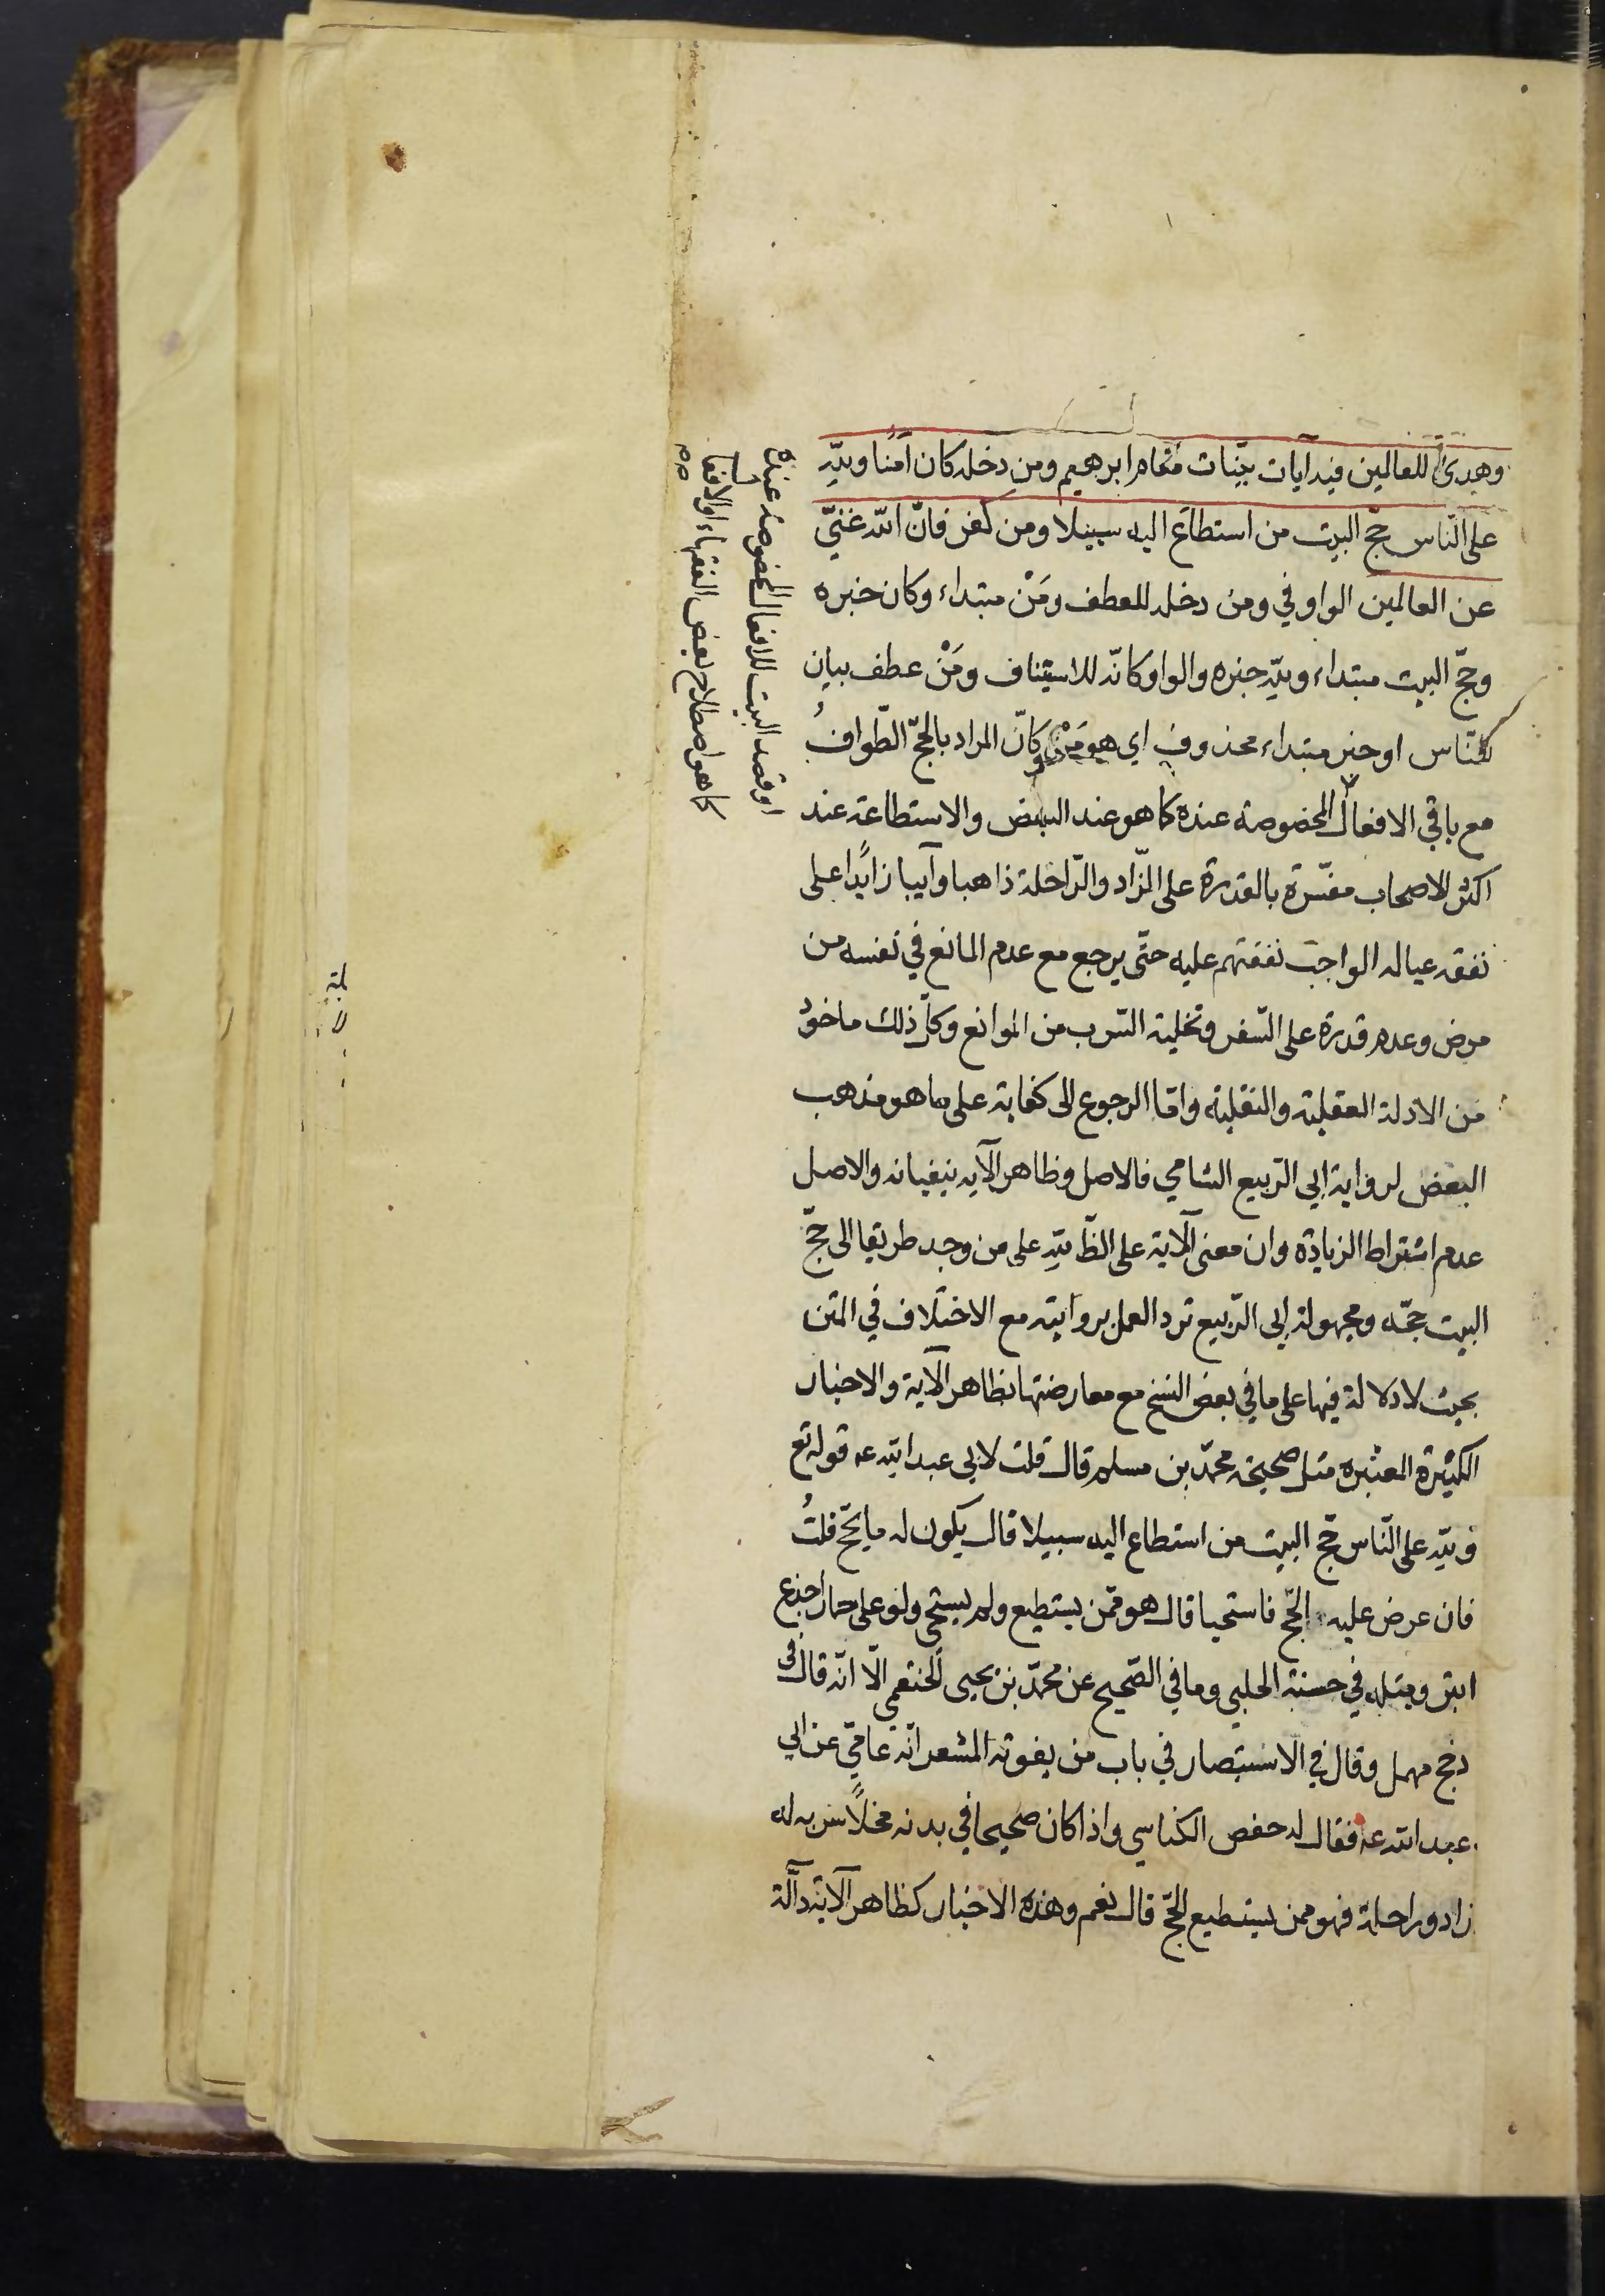 وهدى للعالمين فيه آيات بيّنات مقام ابرهيم ومن دخله كان آمنا ولله
على النّاس حجّ البيت من استطاع اليه سبيلا ومن كفر فانّ الله غنيّ
عن العالمين الواو في ومن دخله للعطف ومَنْ مبتداء وكان خبره
وحجّ البيت مبتداء ولله خبره والواو كانّه للاستيناف ومَنْ عطف بيان
للنّاس او خبر مبتداء محذوف اي هو مَنْ وكانّ المراد بالحجّ الطّوافُ
مع باقي الافعال المخصوصة عنده كما هو عند البعض والاستطاعة عند
اكثر الاصحاب مفسّرة بالقدرة على الزّاد والرّاحلة ذاهبا وآيبا زايدًا على
نفقه عياله الواجب نفقتهم عليه حتّى يرجع مع عدم المانع في نفسه من
مرض وعدم قدرة على السّفر وتخلية السّرب من الموانع وكلّ ذلك ماخوذ
من الادلة العقلية والنقلية وامّا الرجوع الى كفاية على ما هو مذهب
البعض لرواية ابي الرّبيع الشامي فالاصل وظاهر الآيه ينفيانه والاصل
عدم اشتراط الزيادة وان معنى الآية على الظّ لله على من وجد طريقا الى حجّ
البيت حجّه ومجهولة ابي الرّبيع ترد العمل بروايته مع الاختلاف في المتن
بحيث لا دلالة فيها على ما في بعض النسخ مع معارضتها بظاهر الآية والاخبار
الكثيرة المعتبره مثل صحيحة محمّد بن مسلم قال قلت لابي عبد الله عه قوله تع
ولله على النّاس حجّ البيت من استطاع اليه سبيلا قال يكون له ما يحجّ قلتُ
فان عرض عليه الحجّ فاستحيا قال هو ممّن يستطيع ولم يستحي ولو على حمار اجدع
ابتر ومثله في حسنة الحلبي وما في الصّحيح عن محمّد بن يحيى الخثعمي الّا انّه قال في
دجح مهمل وقال في الاستبصار في باب من يفوته المشعر انّه عاميّ عن ابي
عبد الله عه فقال له حفص الكناسي واذا كان صحيحا في بدنه مخلًّا سربه له
زاد وراحلة فهو ممن يستطيع الحجّ قال نعم وهذه الاخبار كظاهر الآية دالّة
او قصد البيت للافعال المخصوصة عنده
كما هو اصطلاح بعض الفقهاء او الافعال